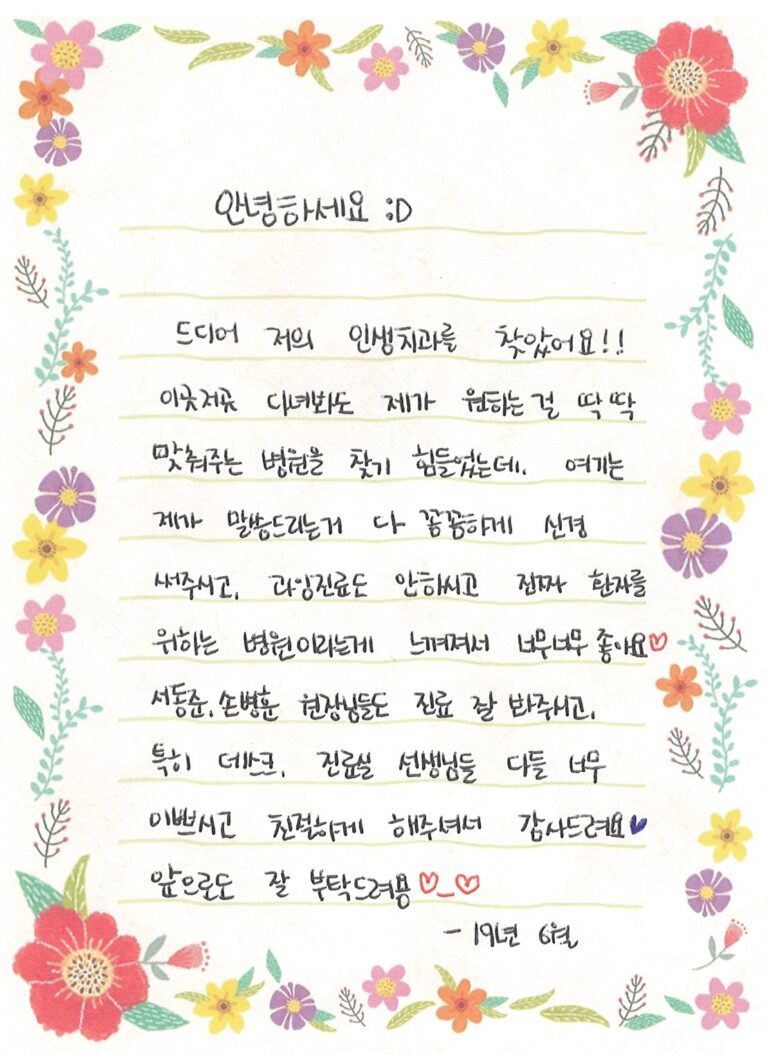 안녕하세요 :D
드디어 저의 인생치과를 찾았어요!!
이곳저곳 다녀봐도 제가 원하는 걸 딱딱
맞춰주는 병원을 찾기 힘들었는데, 여기는
제가 말씀드리는거 다 꼼꼼하게 신경
써주시고, 과잉진료도 안하시고 진짜 환자를
위하는 병원이라는게 느껴져서 너무너무 좋아요♡
서동준, 손병훈 원장님들도 진료 잘 봐주시고,
특히 데스크, 진료실 선생님들 다들 너무
이쁘시고 친절하게 해주셔서 감사드려요♥
앞으로도 잘 부탁드려용 ♡_♡
- 19년 6월